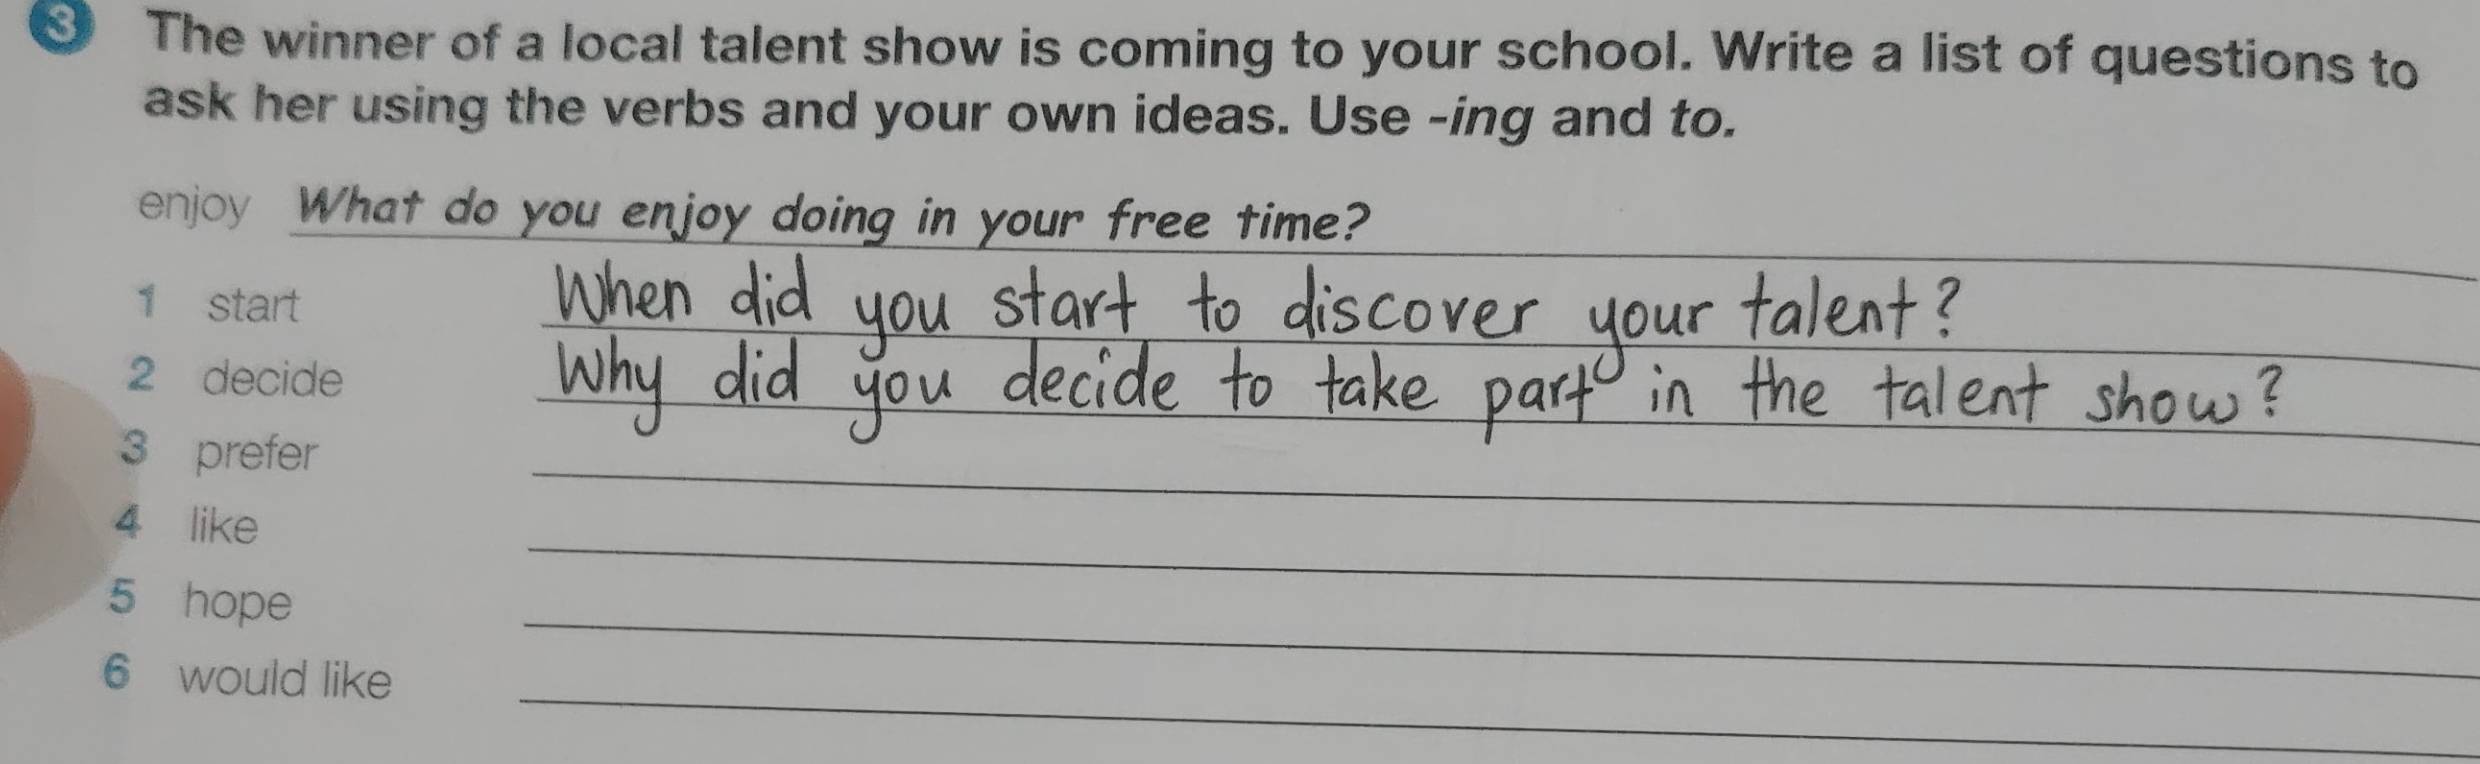 3 The winner of a local talent show is coming to your school. Write a list of questions to
ask her using the verbs and your own ideas. Use -ing and to.
enjoy What do you enjoy doing in your free time?
1 start When did you start to discover your talent?
2 decide Why did you decide to take part in the talent show?
3 prefer
4 like
5 hope
6 would like